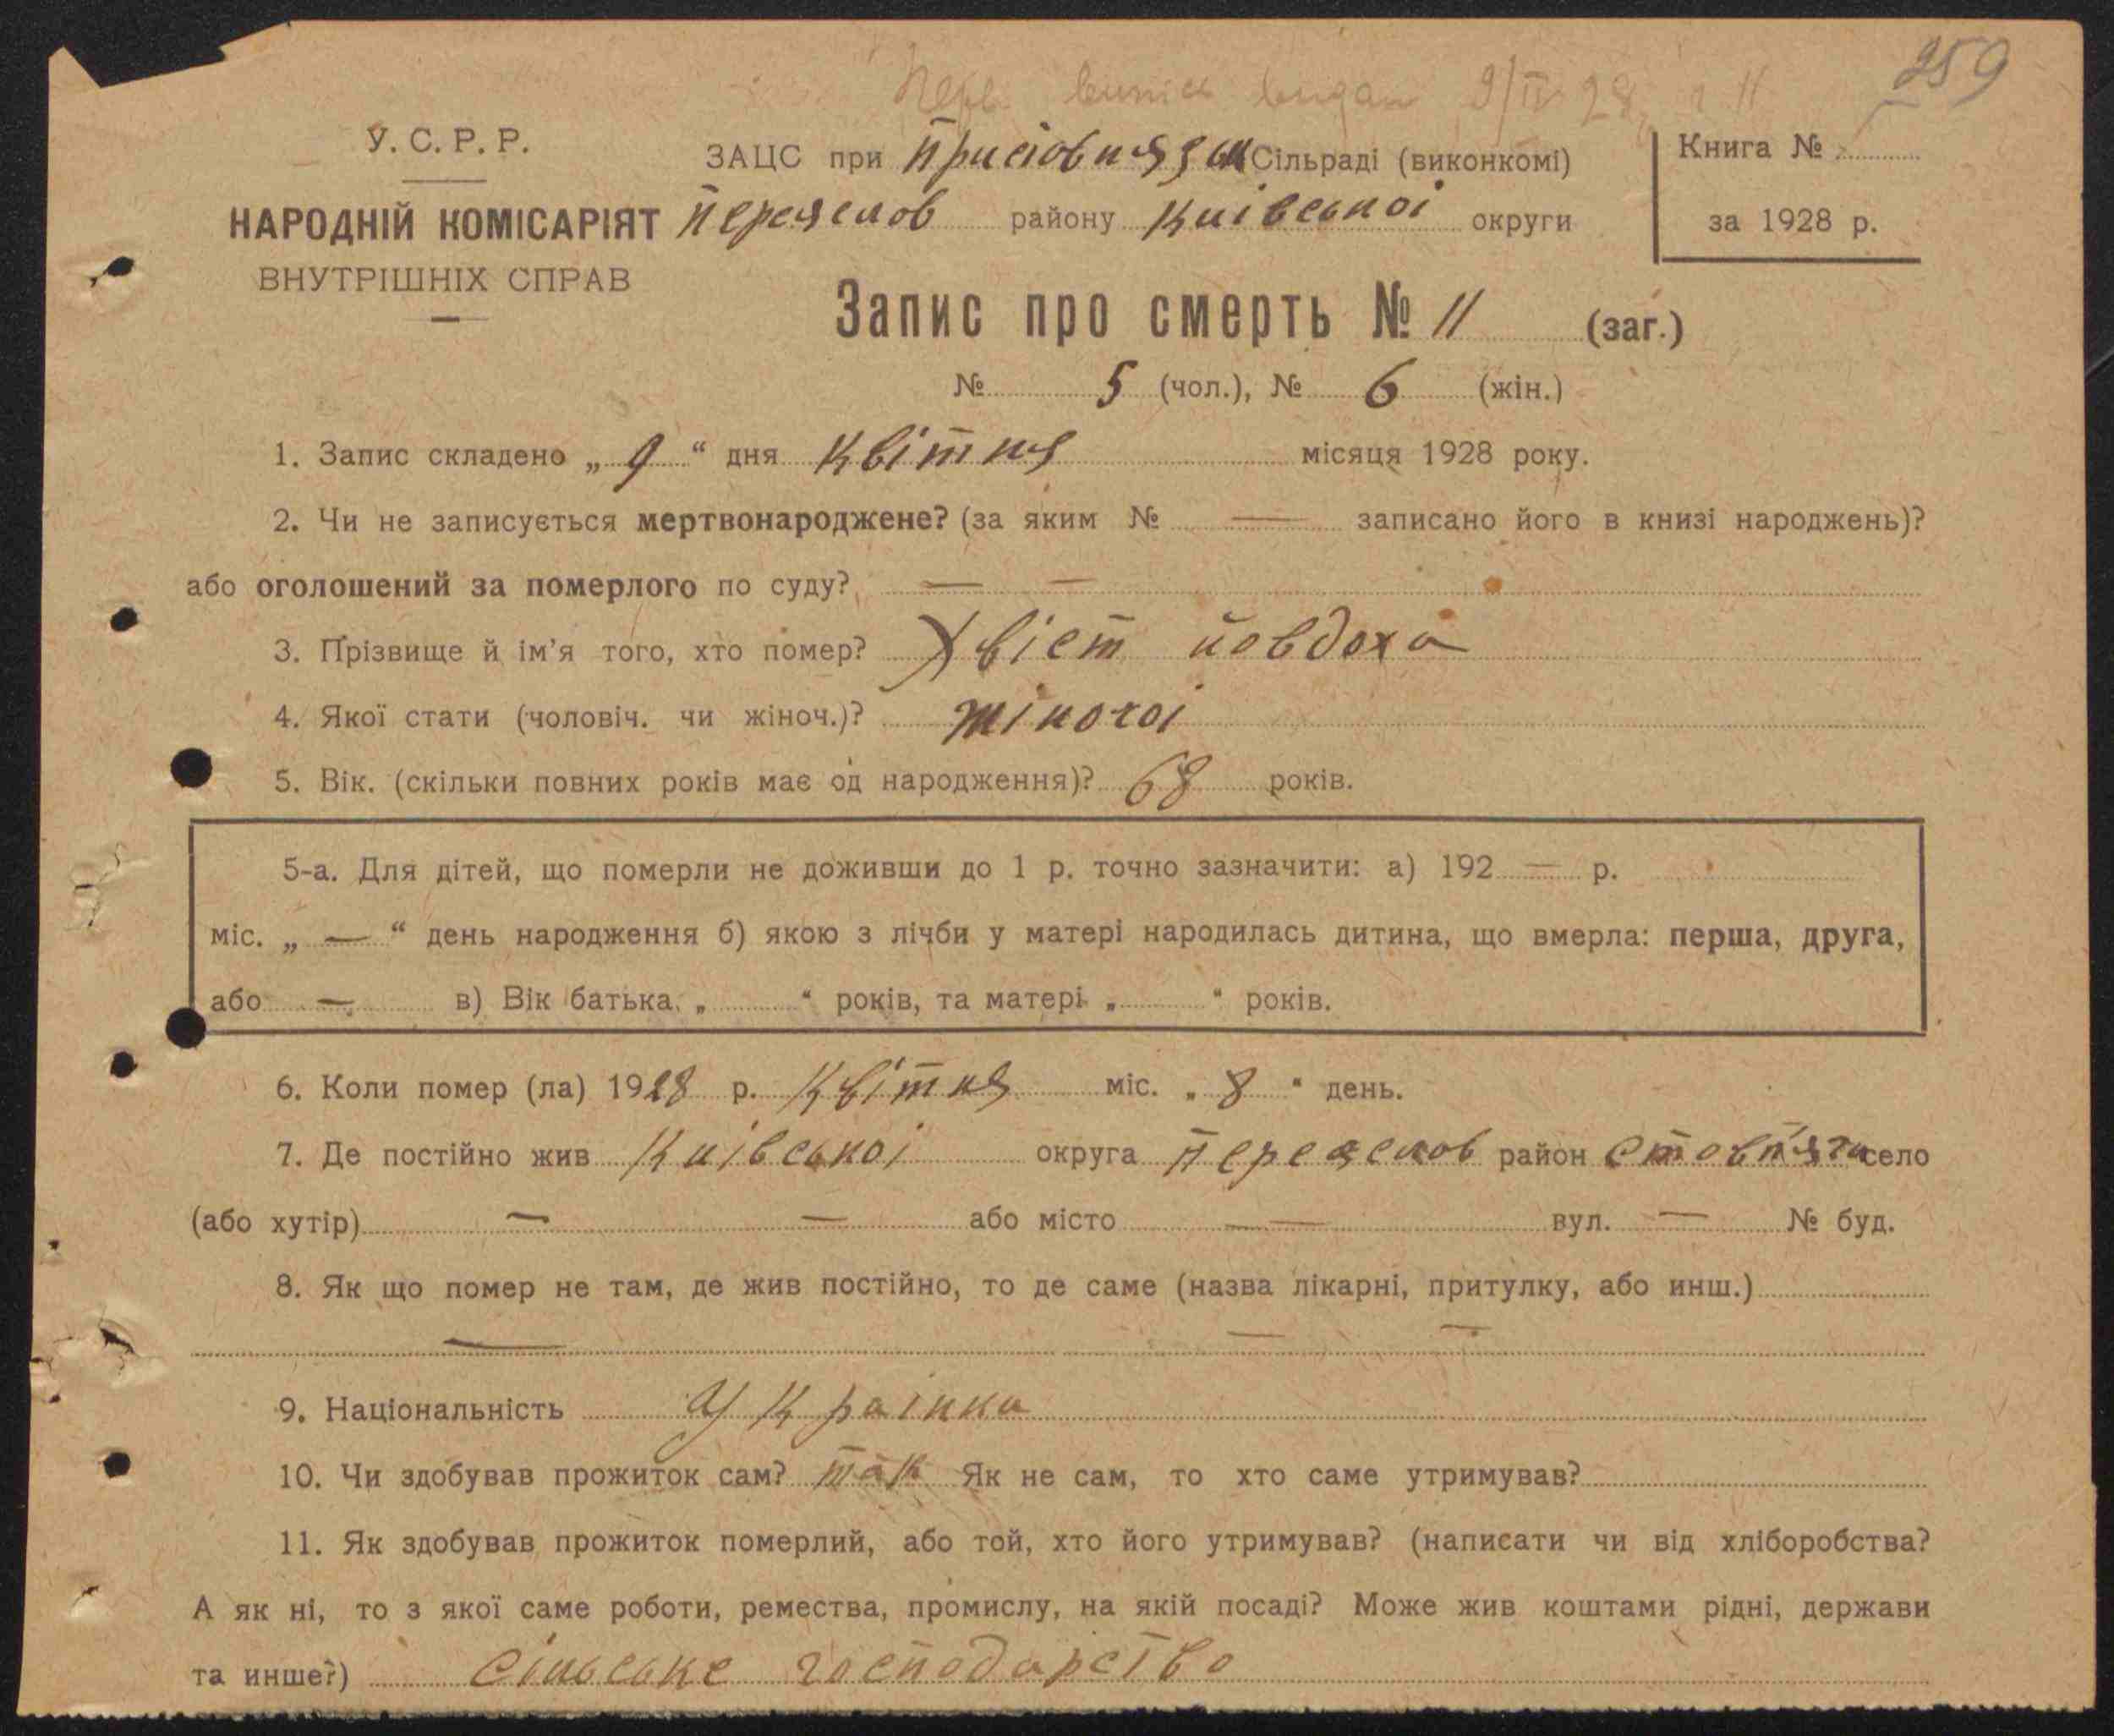 259
Перв. випис видан 9/IV 28 р. 11
У. С. Р. Р.
ЗАЦС при Сільраді (виконкомі)
Книга №
НАРОДНІЙ КОМІСАРІЯТ Переяслов району Київськоі округи
за 1928 р.
ВНУТРІШНІХ СПРАВ
Запис про смерть № 11 (заг.)
№ 5 (чол.), № 6 (жін.)
1. Запис складено „ 9 “ дня квітня місяця 1928 року.
2. Чи не записується мертвонароджене? (за яким № — записано його в книзі народжень)?
або оголошений за померлого по суду? — —
3. Прізвище й ім’я того, хто помер? Хвіст йовдоха
4. Якої стати (чоловіч. чи жіноч.)? жіночоі
5. Вік. (скільки повних років має од народження)? 68 років.
5-а. Для дітей, що померли не доживши до 1 р. точно зазначити: а) 192 — р.
міс. „ — “ день народження б) якою з лічби у матері народилась дитина, що вмерла: перша, друга,
або — в) Вік батька „ “ років, та матері „ “ років.
6. Коли помер (ла) 1928 р. квітня міс. „ 8 “ день.
7. Де постійно жив Київськоі округа Переяслов район Стовп'яги село
(або хутір) — — або місто — вул. — № буд.
8. Як що помер не там, де жив постійно, то де саме (назва лікарні, притулку, або инш.)
— — —
9. Національність Украінка
10. Чи здобував прожиток сам? так Як не сам, то хто саме утримував?
11. Як здобував прожиток померлий, або той, хто його утримував? (написати чи від хліборобства?
А як ні, то з якої саме роботи, ремества, промислу, на якій посаді? Може жив коштами рідні, держави
та инше?) сільське господарство